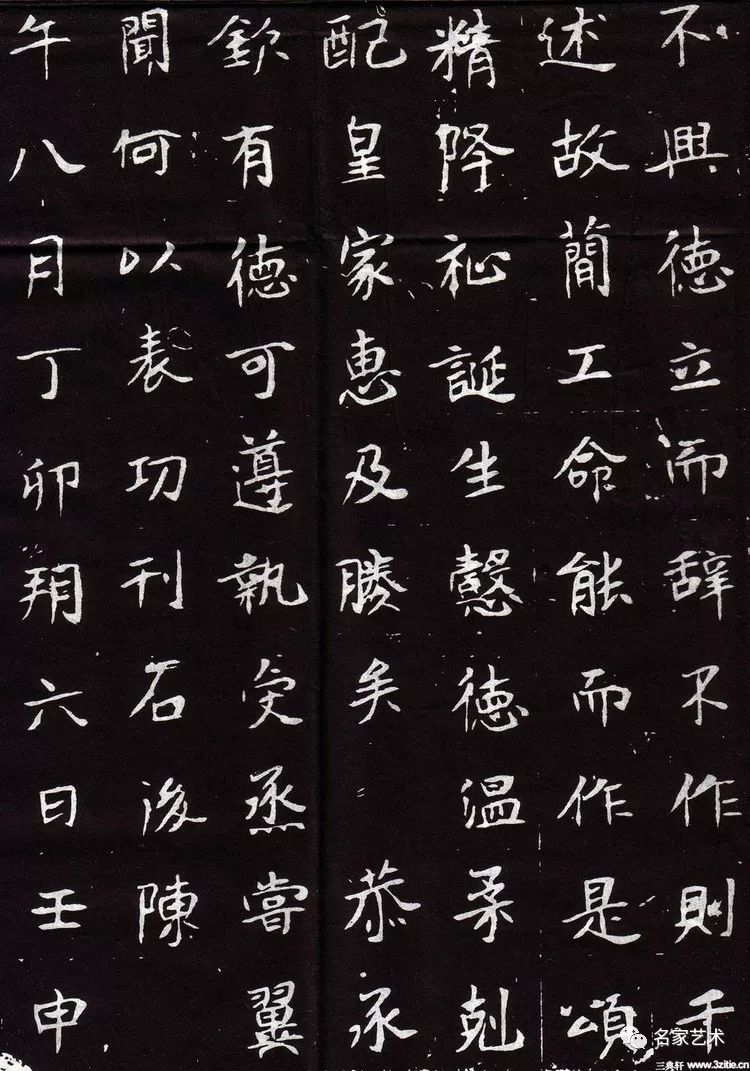 不興德立而辞不作則千
述故簡工命能而作是頌
精降祉誕生懿德温柔剋
配皇家惠及勝矣 恭承
欽有德可遵執受烝嘗翼
聞何以表功刊石後陳
午八月丁卯朔六日壬申
名家艺术
三典轩 www.3zitie.cn